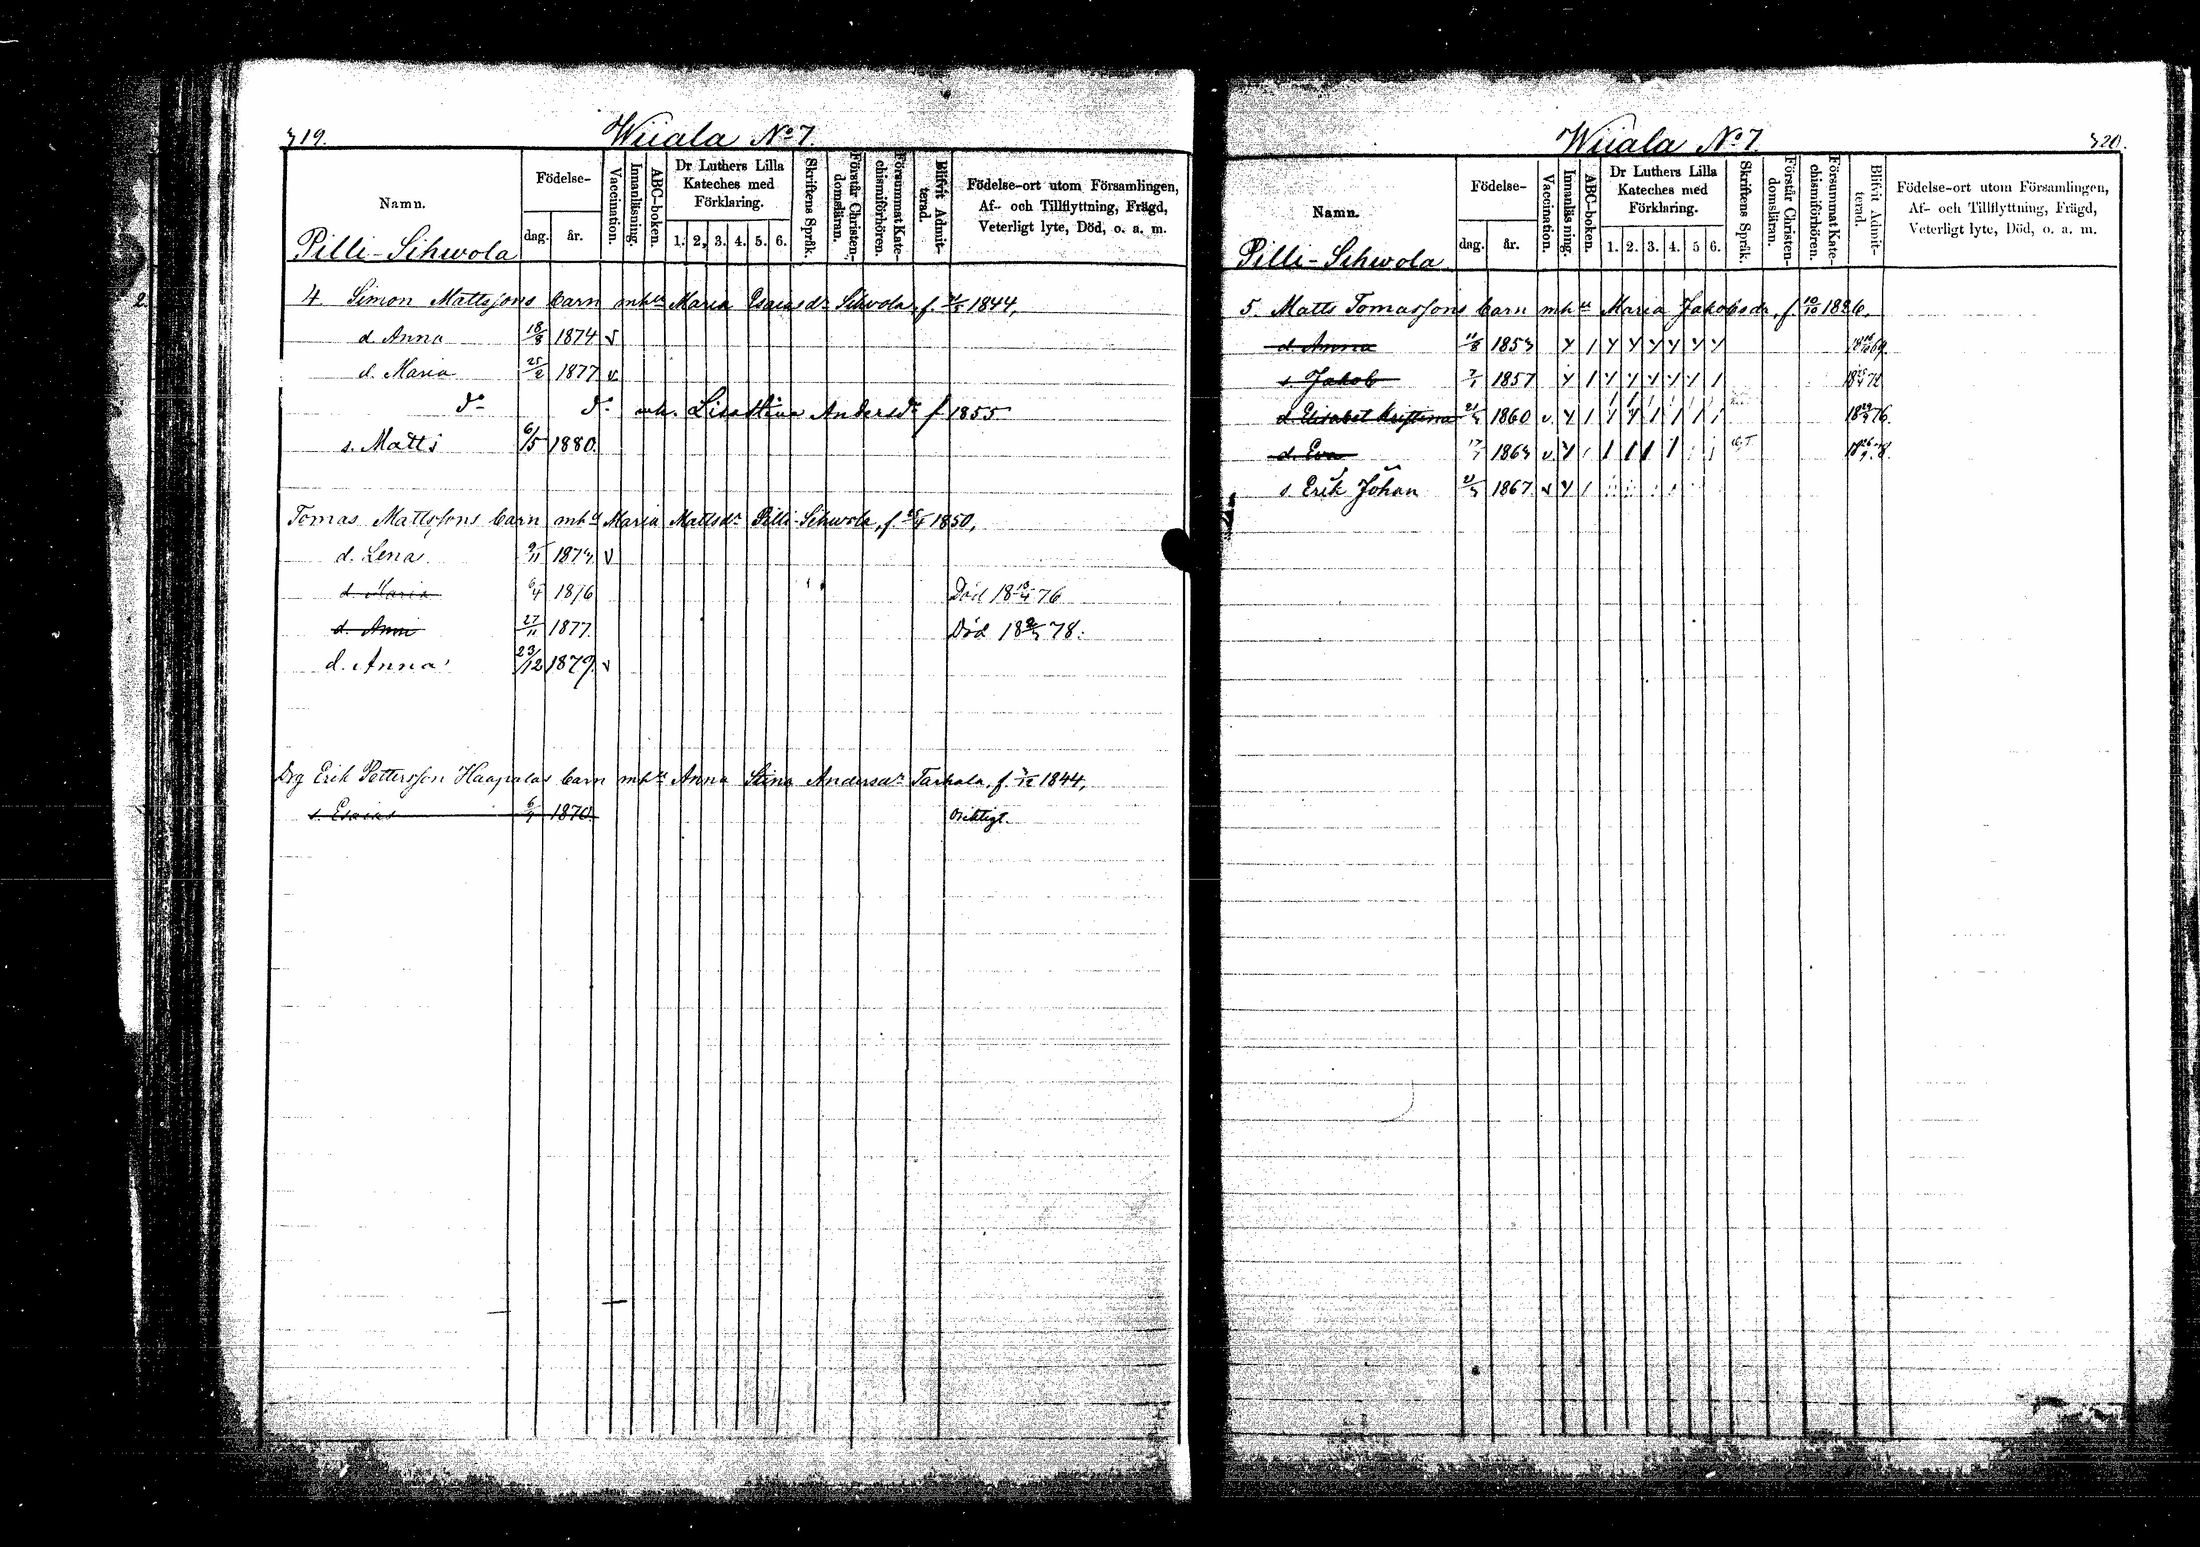 319.
Wiiala No 7.
Namn.
Födelse-
dag.
år.
Vaccination.
Innanläsning.
ABC-boken.
Dr Luthers Lilla Kateches med Förklaring.
1. 2. 3. 4. 5. 6.
Skriftens Språk.
Förstår Christendomsläran.
Försummat Katechismiförhören.
Blifvit Admitterad.
Födelse-ort utom Församlingen, Af- och Tillflyttning, Frägd, Veterligt lyte, Död, o. a. m.
Pilli-Sihvola
4 Simon Mattssons barn mh Maria Esaiasdr Sihvola, f. 1844,
d. Anna 18/8 1874 v
d. Maria 25/2 1877 v
do do mh. Lisa Stina Andersdr f 1855
s. Matts 6/5 1880.
Tomas Mattssons barn mh Maria Mattsdr Pilli-Sihvola, f 1850,
d. Lena 9/11 1873 v
d. Maria 6/4 1876 Död 18 18/4 76
d. Anna 27/11 1877. Död 18 78.
d. Anna 23/12 1879. v
Drg Erik Pettersson Haapalas barn mh Anna Stina Andersdr Tarkala, f. 1844,
s. Esaias 1870. oriktigt.
320.
Wiiala No 7
Namn.
Födelse-
dag.
år.
Vaccination.
Innanläsning.
ABC-boken.
Dr Luthers Lilla Kateches med Förklaring.
1. 2. 3. 4. 5 6.
Skriftens Språk.
Förstår Christendomsläran.
Försummat Katechismiförhören.
Blifvit Admitterad.
Födelse-ort utom Församlingen, Af- och Tillflyttning, Frägd, Veterligt lyte, Död, o. a. m.
Pilli-Sihvola
5. Matts Tomassons barn mh Maria Jakobsdr, f. 10/10 1826,
d. Anna 1853
s. Jakob 1857
d. Elisabet Kristina 1860 v
d. Eva 1863 v
s. Erik Johan 1867 v